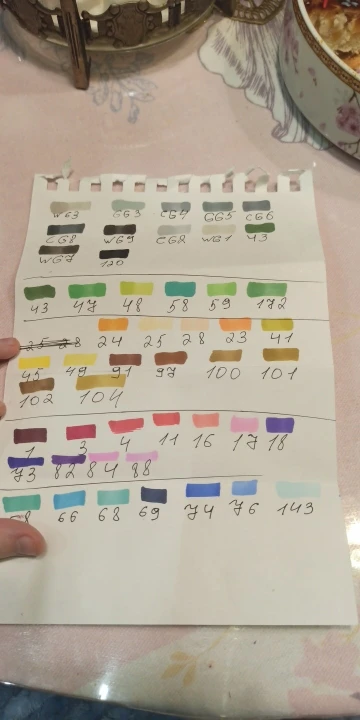 WG3 GG3 CG4 GG5 CG6
CG8 WG9 CG2 WG1 43
WG7 120
43 47 48 58 59 172
24 25 28 23 41
45 49 91 97 100 101
102 104
1 3 4 11 16 17 18
73 82 84 88
66 68 69 74 76 143